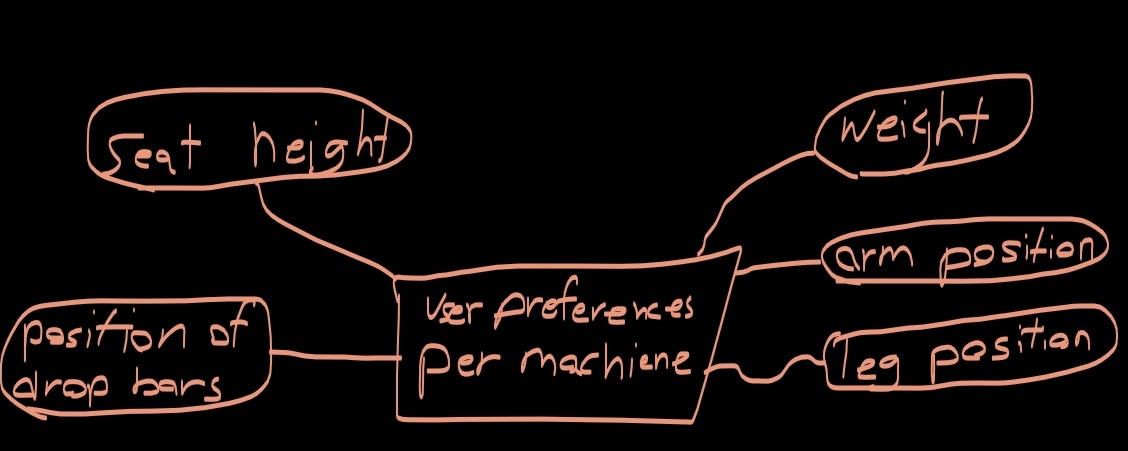 seat height
weight
arm position
user preferences
per machiene
position of
drop bars
leg position